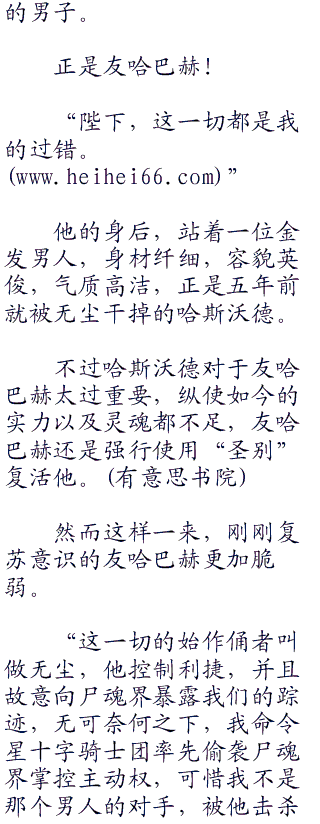 的男子。
正是友哈巴赫！
“陛下，这一切都是我
的过错。
(www.heihei66.com)”
他的身后，站着一位金
发男人，身材纤细，容貌英
俊，气质高洁，正是五年前
就被无尘干掉的哈斯沃德。
不过哈斯沃德对于友哈
巴赫太过重要，纵使如今的
实力以及灵魂都不足，友哈
巴赫还是强行使用“圣别”
复活他。(有意思书院)
然而这样一来，刚刚复
苏意识的友哈巴赫更加脆
弱。
“这一切的始作俑者叫
做无尘，他控制利捷，并且
故意向尸魂界暴露我们的踪
迹，无可奈何之下，我命令
星十字骑士团率先偷袭尸魂
界掌控主动权，可惜我不是
那个男人的对手，被他击杀